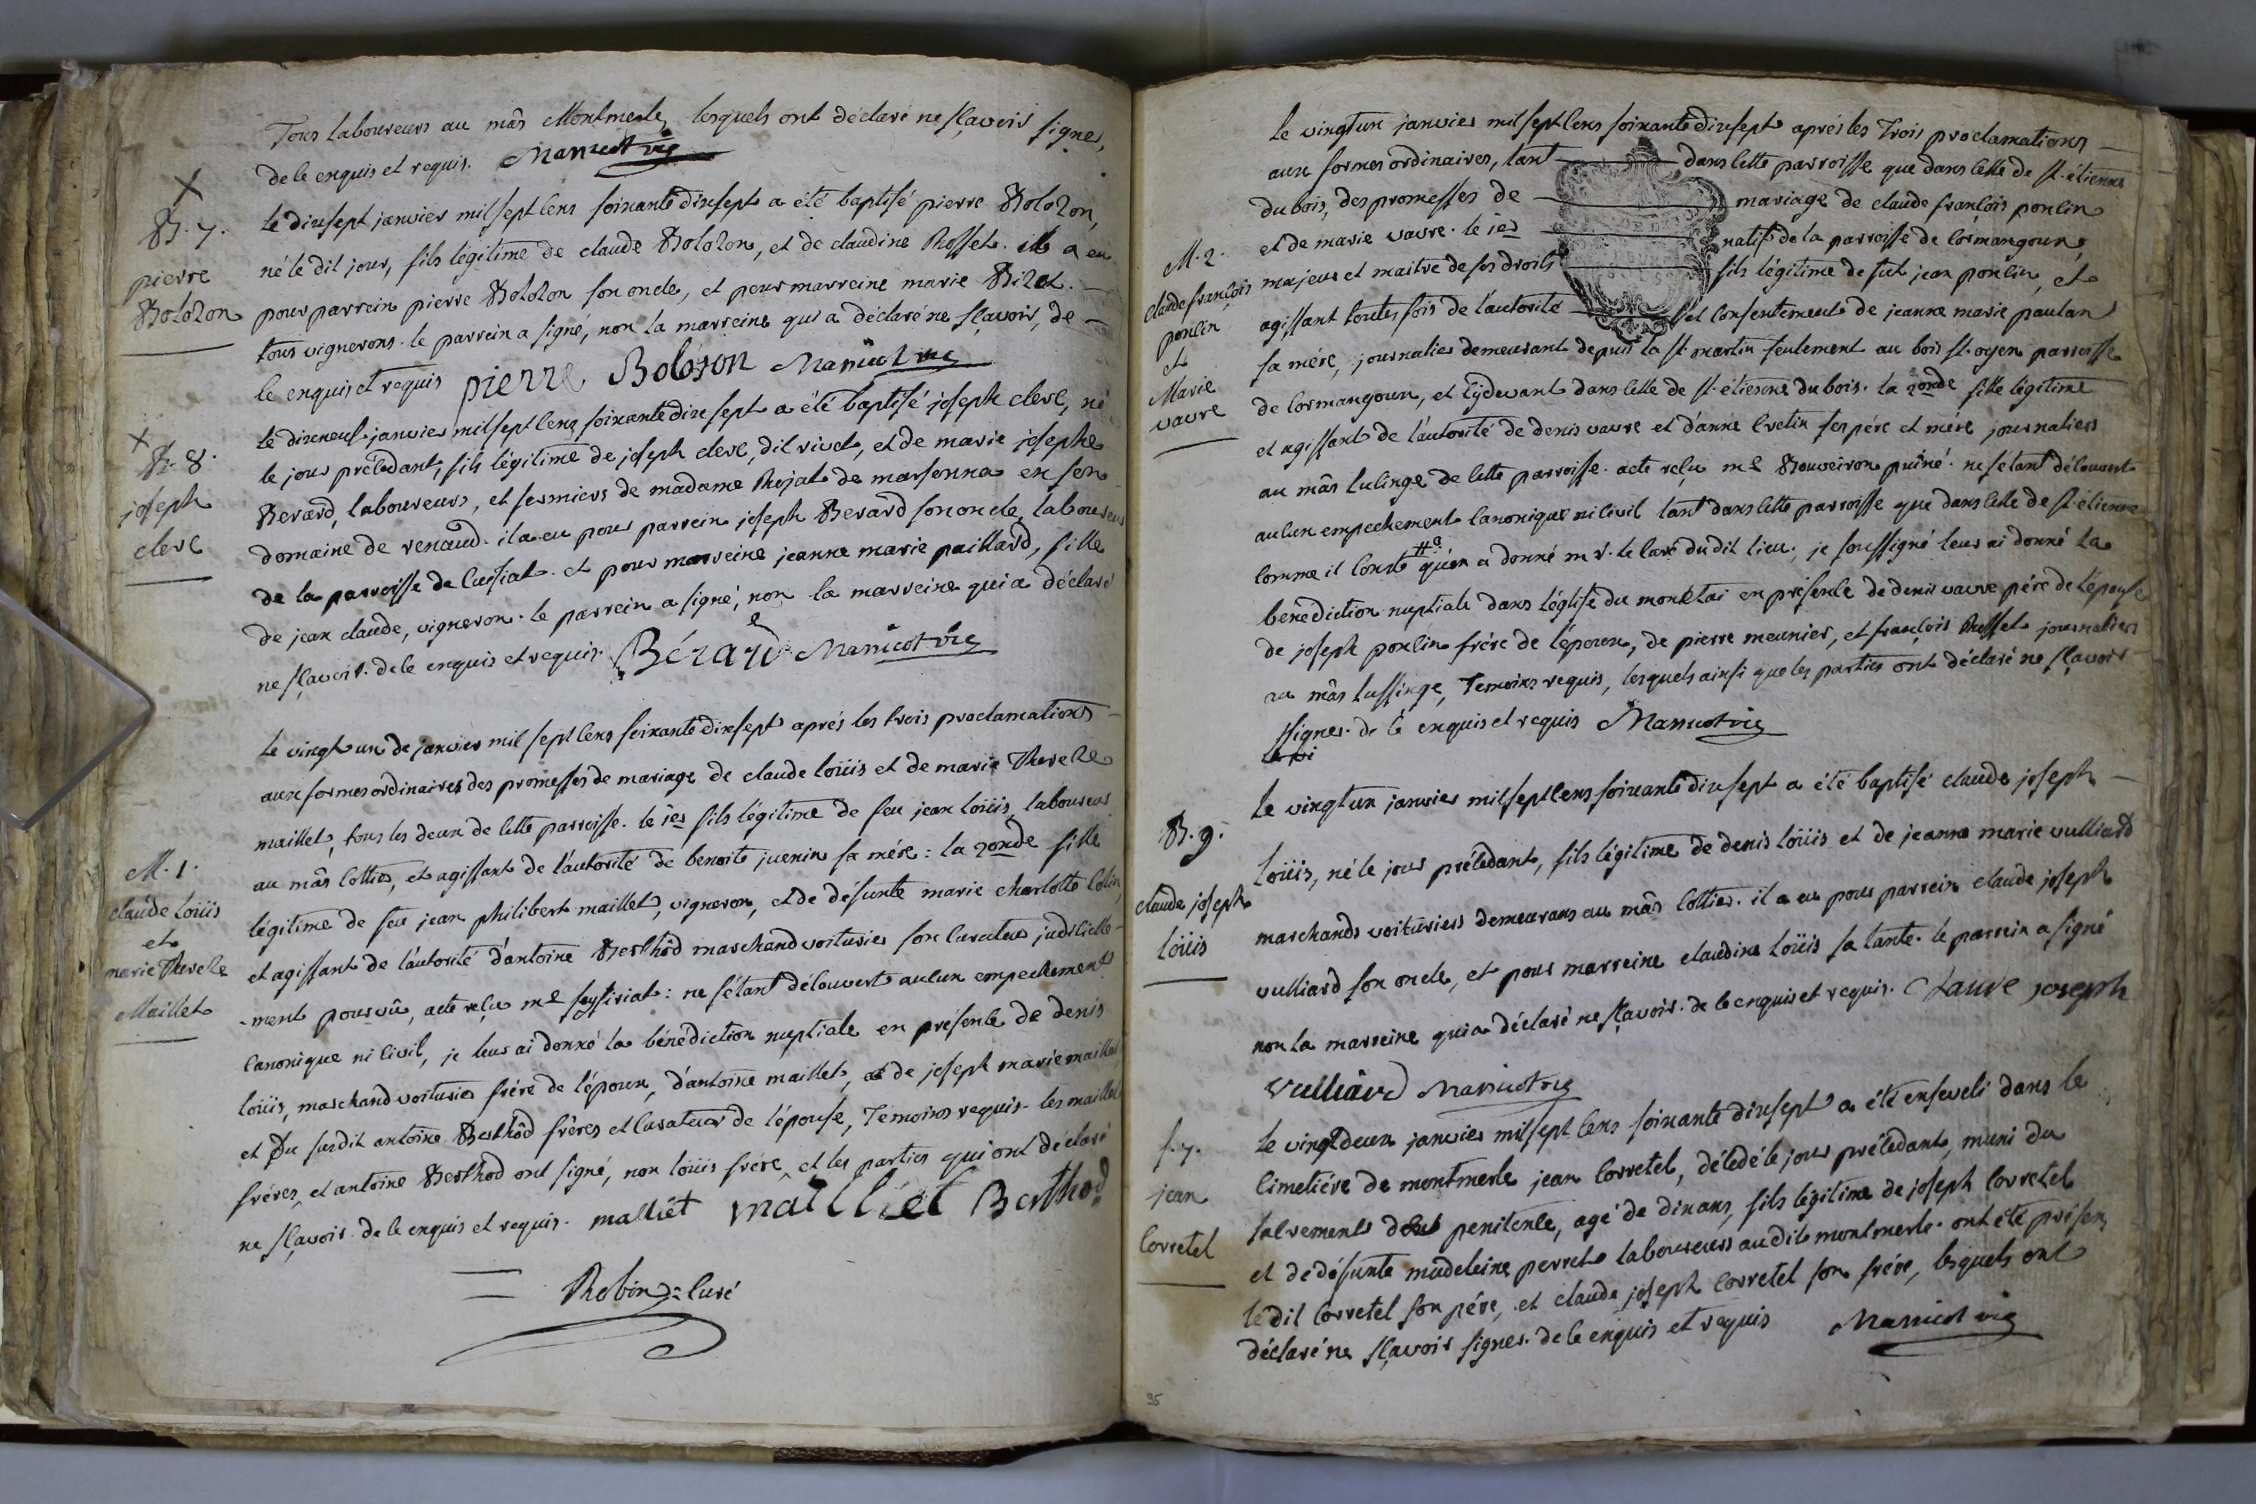 Tous laboureurs au mâs Montmerle, lesquels ont déclaré ne sçavoir signer,
de ce enquis et requis. Manicot vic
B. 7.
pierre
Bolozon
le dixsept janvier mil sept cens soixante dixsept a été baptisé pierre Bolozon,
né le dit jour, fils légitime de claude Bolozon, et de claudine Rosset. il a eu
pour parrein pierre Bolozon son oncle, et pour marreine marie
tous vignerons. le parrein a signé, non la marreine qui a déclaré ne sçavoir, de
ce enquis et requis pierre Bolozon Manicot vic
B. 8.
joseph
clerc
le dixneuf janvier mil sept cens soixante dix sept a été baptisé joseph clerc, né
le jour précedant, fils légitime de joseph clerc, dit rivet, et de marie josephe
Berard, laboureurs, et fermiers de madame Rojat de marsonna en son
domaine de renaud. il a eu pour parrein joseph Berard son oncle, laboureur
de la parroisse de cuisiat. et pour marreine jeanne marie paillard, fille
de jean claude, vigneron. le parrein a signé, non la marreine qui a déclaré
ne sçavoir. de ce enquis et requis. Bérard Manicot vic
M. 1.
claude loüis
et
marie Therese
Maillet
le vingt un de janvier mil sept cens soixante dixsept aprés les trois proclamations
aux formes ordinaires des promesses de mariage de claude loüis et de marie Therese
maillet, tous les deux de cette parroisse. le 1er fils légitime de feu jean loüis, laboureur
au mâs cottier, et agissant de l'autorité de benoite juenin sa mére: la 2onde fille
légitime de feu jean philibert maillet, vigneron, et de défunte marie charlotte Colin,
et agissant de l'autorité d'antoine Berthôd marchand voiturier son curateur judicielle-
-ment pourvû, acte reçu me: ne s'étant découvert aucun empechement
canonique ni civil, je leur ai donné la bénédiction nuptiale en présence de denis
loüis, marchand voiturier frére de l'époux, d'antoine maillet, et de joseph marie maillet,
et Du susdit antoine Berthôd fréres et curateur de l'épouse, Temoins requis. les maillet
fréres, et antoine Berthod ont signé, non loüis frére, et les parties qui ont déclaré
ne sçavoir. de ce enquis et requis. malliét mailliet Berthod
Robin curé
M. 2.
claude françois
poncin
et
Marie
vavre
Le vingt un janvier mil sept cens soixante dixsept aprés les Trois proclamations
aux formes ordinaires, tant dans cette parroisse que dans celle de st. étienne
du bois, des promesses de mariage de claude françois poncin
et de marie vavre. le 1er natif de la parroisse de Cormangoux,
majeur et maitre de ses droits fils légitime de feu jean poncin, et
agissant toutes fois de l'autorité et consentement de jeanne marie pautan
sa mére, journalier demeurant depuis la st. martin seulement au bois st. oyen parroisse
de Cormangoux, et cydevant dans celle de st. étienne du bois. la 2onde fille légitime
et agissant de l'autorité de denis vavre et d'anne Cretin ses pére et mére journaliers
au mâs Lucinge de cette parroisse. acte reçu me Bouveiron puîné. ne s'étant découvert
aucun empechement canonique ni civil tant dans cette parroisse que dans celle de st. étienne
comme il conste qu'en a donné mr. le curé du dit lieu; je soussigné leur ai donné la
bénédiction nuptiale dans l'église du monetai en présence de denis vavre pére de l'épouse
de joseph poncin frére de l'époux, de pierre meunier, et françois Rosset journaliers
au mâs Lussinge, Temoins requis, lesquels ainsi que les parties ont déclaré ne sçavoir
signer. de ce enquis et requis Manicot vic
B. 9.
claude joseph
loüis
Le vingt un janvier mil sept cens soixante dixsept a été baptisé claude joseph
loüis, né le jour précedant, fils légitime de denis loüis et de jeanne marie vulliard
marchands voituriers demeurans au mâs cottier. il a eu pour parrein claude joseph
vulliard son oncle, et pour marreine claudine loüis sa tante. le parrein a signé
non la marreine qui a déclaré ne sçavoir. de ce enquis et requis. Claude joseph
vulliard Manicot vic
S. 7.
jean
Corretel
Le vingt deux janvier mil sept cens soixante dixsept a été enseveli dans le
cimetiére de montmerle jean Corretel, décedé le jour précedant, muni du
sacrement de penitence, agé de dix ans, fils légitime de joseph Corretel
et de défunte madeleine perret laboureurs au dit montmerle. ont été présens
le dit Corretel son pére, et claude joseph Corretel son frére, lesquels ont
déclaré ne sçavoir signer. de ce enquis et requis Manicot vic
95